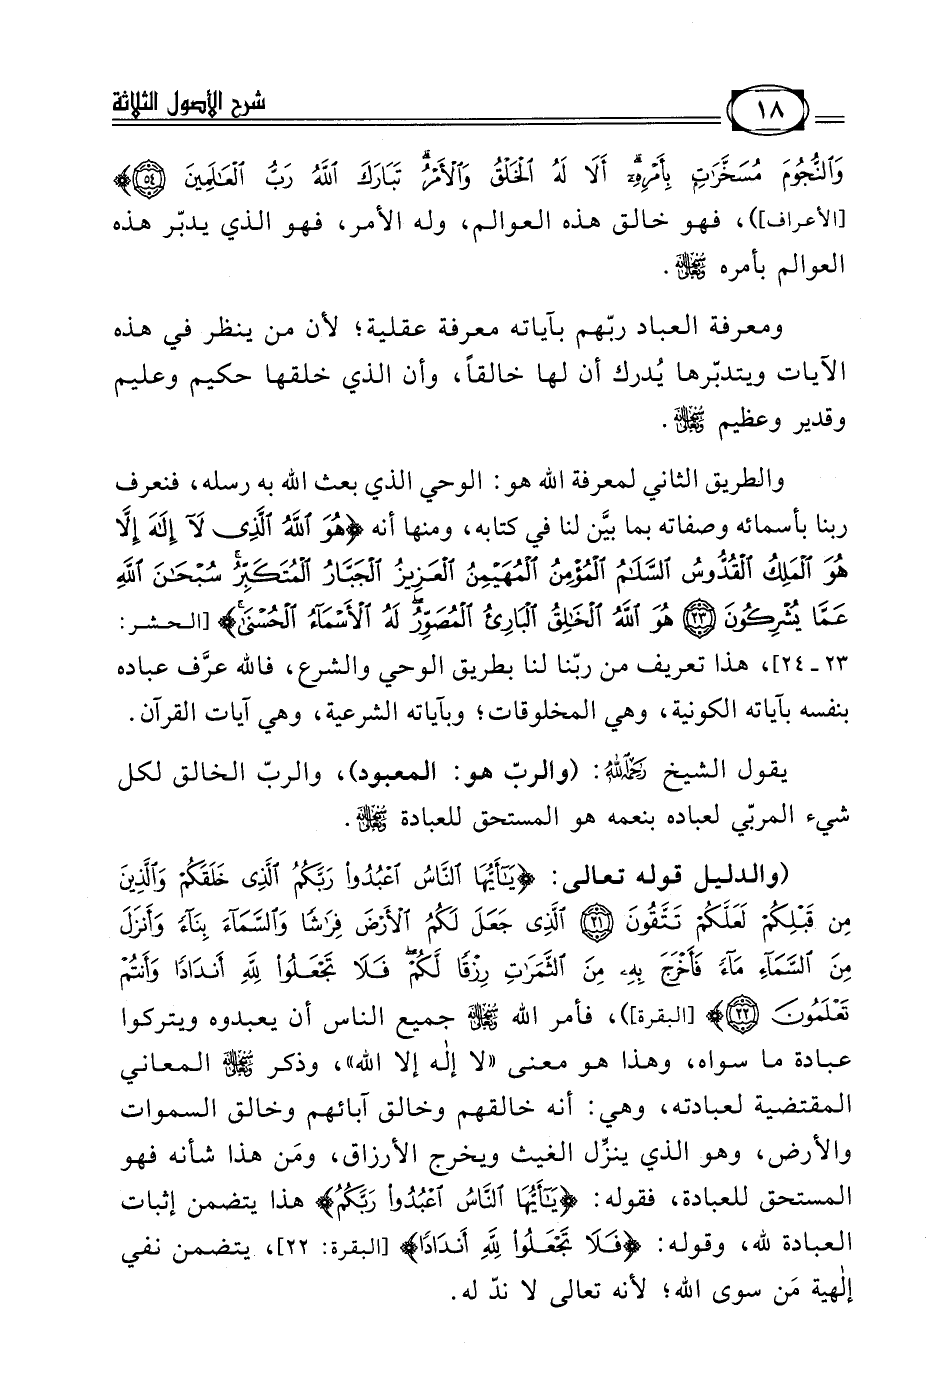 ١٨ شرح الأصول الثلاثة
وَٱلنُّجُومَ مُسَخَّرَٰتٍۭ بِأَمْرِهِۦٓ ۗ أَلَا لَهُ ٱلْخَلْقُ وَٱلْأَمْرُ ۗ تَبَارَكَ ٱللَّهُ رَبُّ ٱلْعَٰلَمِينَ ٥٤﴾
[الأعراف])، فهو خالق هذه العوالم، وله الأمر، فهو الذي يدبّر هذه
العوالم بأمره ﷾.
ومعرفة العباد ربّهم بآياته معرفة عقلية؛ لأن من ينظر في هذه
الآيات ويتدبّرها يُدرك أن لها خالقاً، وأن الذي خلقها حكيم وعليم
وقدير وعظيم ﷾.
والطريق الثاني لمعرفة الله هو: الوحي الذي بعث الله به رسله، فنعرف
ربنا بأسمائه وصفاته بما بيَّن لنا في كتابه، ومنها أنه ﴿هُوَ ٱللَّهُ ٱلَّذِى لَآ إِلَٰهَ إِلَّا
هُوَ ٱلْمَلِكُ ٱلْقُدُّوسُ ٱلسَّلَٰمُ ٱلْمُؤْمِنُ ٱلْمُهَيْمِنُ ٱلْعَزِيزُ ٱلْجَبَّارُ ٱلْمُتَكَبِّرُ ۚ سُبْحَٰنَ ٱللَّهِ
عَمَّا يُشْرِكُونَ ٢٣ هُوَ ٱللَّهُ ٱلْخَٰلِقُ ٱلْبَارِئُ ٱلْمُصَوِّرُ ۖ لَهُ ٱلْأَسْمَآءُ ٱلْحُسْنَىٰ ۚ﴾ [الحشر:
٢٣ـ٢٤]، هذا تعريف من ربّنا لنا بطريق الوحي والشرع، فالله عرَّف عباده
بنفسه بآياته الكونية، وهي المخلوقات؛ وبآياته الشرعية، وهي آيات القرآن.
يقول الشيخ رَحِمَهُ اللهُ: (والربّ هو: المعبود)، والربّ الخالق لكل
شيء المربّي لعباده بنعمه هو المستحق للعبادة ﷾.
(والدليل قوله تعالى: ﴿يَٰٓأَيُّهَا ٱلنَّاسُ ٱعْبُدُوا۟ رَبَّكُمُ ٱلَّذِى خَلَقَكُمْ وَٱلَّذِينَ
مِن قَبْلِكُمْ لَعَلَّكُمْ تَتَّقُونَ ٢١ ٱلَّذِى جَعَلَ لَكُمُ ٱلْأَرْضَ فِرَٰشًا وَٱلسَّمَآءَ بِنَآءً وَأَنزَلَ
مِنَ ٱلسَّمَآءِ مَآءً فَأَخْرَجَ بِهِۦ مِنَ ٱلثَّمَرَٰتِ رِزْقًا لَّكُمْ ۖ فَلَا تَجْعَلُوا۟ لِلَّهِ أَندَادًا وَأَنتُمْ
تَعْلَمُونَ ٢٢﴾ [البقرة])، فأمر الله ﷾ جميع الناس أن يعبدوه ويتركوا
عبادة ما سواه، وهذا هو معنى «لا إلٰه إلا الله»، وذكر ﷾ المعاني
المقتضية لعبادته، وهي: أنه خالقهم وخالق آبائهم وخالق السموات
والأرض، وهو الذي ينزِّل الغيث ويخرج الأرزاق، ومَن هذا شأنه فهو
المستحق للعبادة، فقوله: ﴿يَٰٓأَيُّهَا ٱلنَّاسُ ٱعْبُدُوا۟ رَبَّكُمُ﴾ هذا يتضمن إثبات
العبادة لله، وقوله: ﴿فَلَا تَجْعَلُوا۟ لِلَّهِ أَندَادًا﴾ [البقرة: ٢٢]، يتضمن نفي
إلٰهية مَن سوى الله؛ لأنه تعالى لا ندّ له.